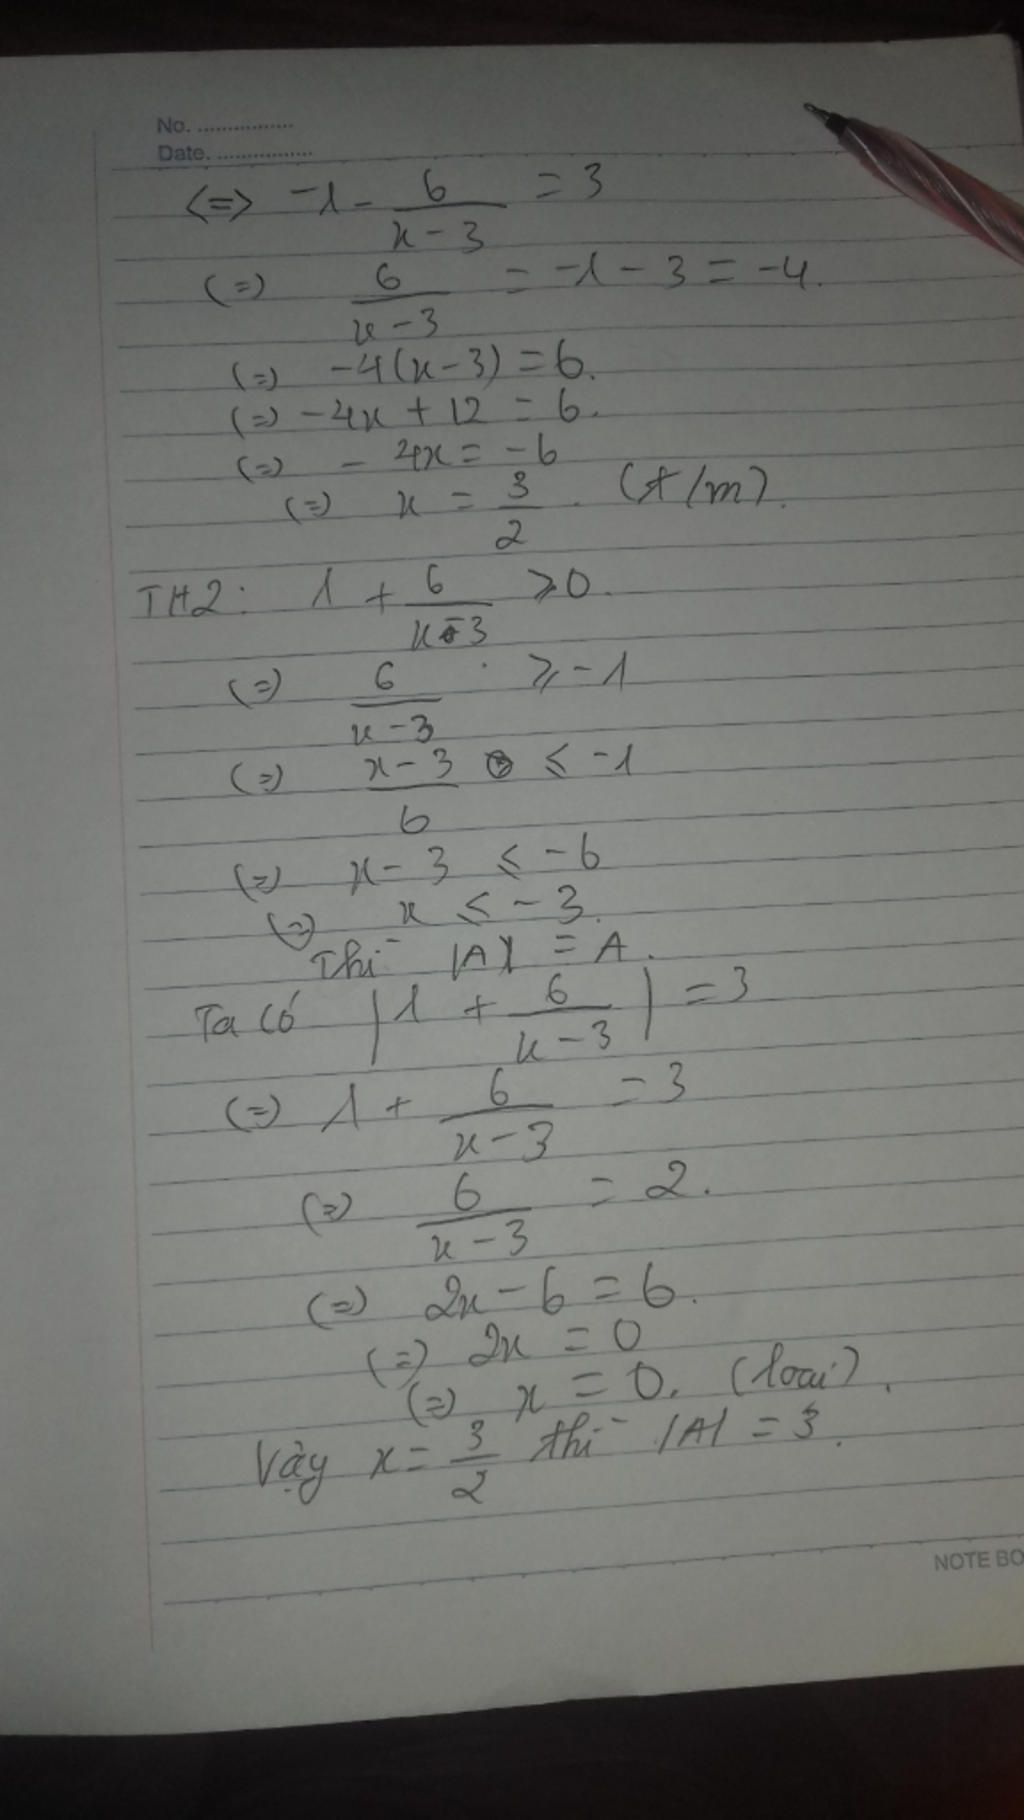 No. ................
Date. ................
<=> -1 - 6/(x-3) = 3
(=) 6/(x-3) = -1 - 3 = -4.
(=) -4(x-3) = 6.
(=) -4x + 12 = 6.
(=) - 4x = -6
(=) x = 3/2 . (t/m).
TH2: 1 + 6/(x-3) ≥ 0.
(=) 6/(x-3) ≥ -1
(=) (x-3)/6 ≤ -1
(=) x - 3 ≤ -6
(=) x ≤ -3.
Thì |A| = A.
Ta có |1 + 6/(x-3)| = 3
(=) 1 + 6/(x-3) = 3
(=) 6/(x-3) = 2.
(=) 2x - 6 = 6.
(=) 2x = 0
(=) x = 0. (loại).
Vậy x = 3/2 thì |A| = 3.
NOTE BO